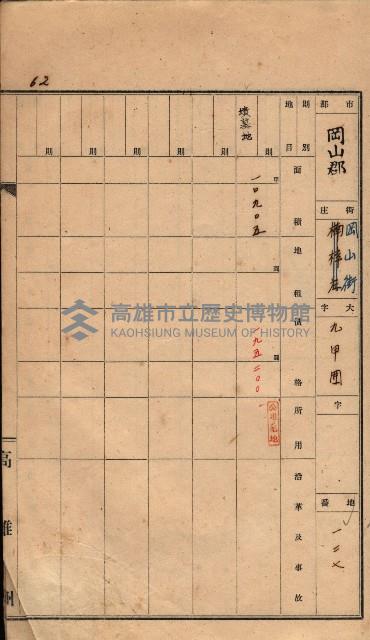 62
市郡 岡山郡
街庄 岡山街 楠梓庄
大字 九甲囲
字
地番 一二七
則別 地目 面積 地租 價格 所用 沿革及事故
則 墳墓地
甲 一〇九〇五
圓
圓 九五二〇〇
公用地
則
則
則
則
則
則
高雄市立歷史博物館
KAOHSIUNG MUSEUM OF HISTORY
高雄州